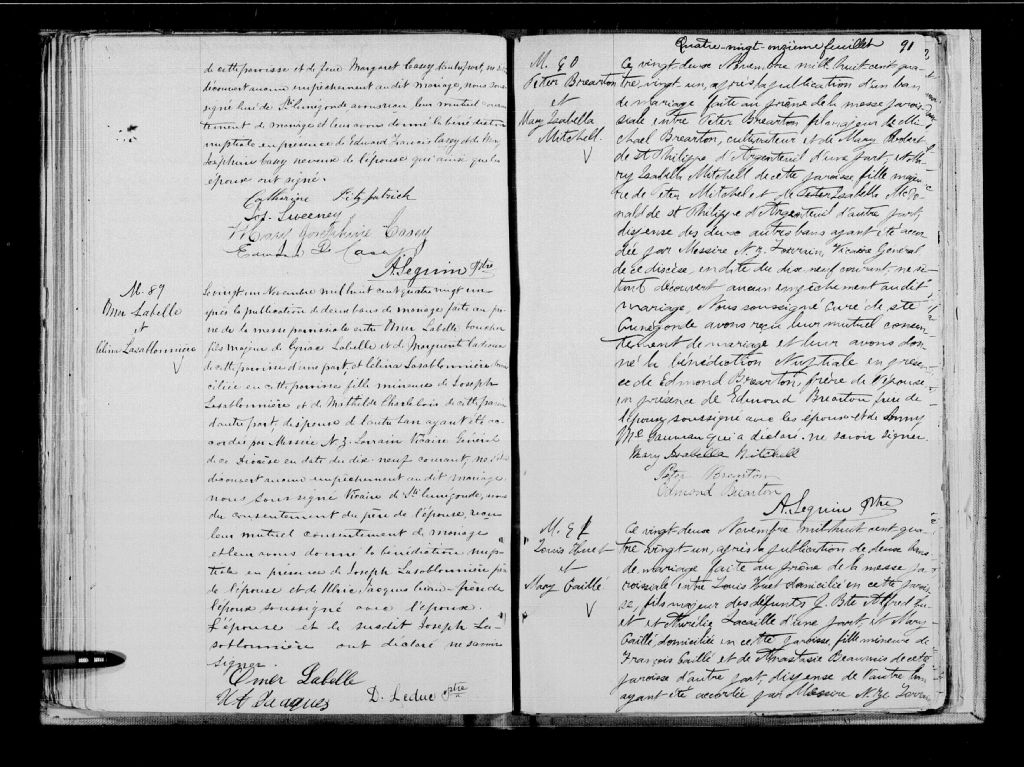 de cette paroisse et de feue Margaret Casey d'autre part, ne
découvert aucun empêchement au dit mariage, nous sous
signé curé de Ste Cunégonde avons reçu leur mutuel consen
tement de mariage et leur avons donné la bénédiction
nuptiale en présence de Edward Francis Casey et de Mary
Josephine Casey neveux de l'épouse qui ainsi que les
époux ont signé.
Catherine Fitzpatrick
Sweeney
Mary Josephine Casey
Edward
A. Seguin Ptre
M. 89
Omer Labelle
et
Célina Lasablonnière
Le vingt un Novembre mil huit cent quatre vingt un
après la publication de deux bans de mariage faite au prô
ne de la messe paroissiale entre Omer Labelle boucher
fils majeur de Cyriac Labelle et de Marguerite Ladouceur
de cette paroisse d'une part, et Célina Lasablonnière domi
ciliée en cette paroisse fille mineure de Joseph
Lasablonnière et de Mathilde Charlebois de cette paroisse
d'autre part, dispense de l'autre ban ayant été ac
cordée par Messire N. Z. Lorrain Vicaire Général
de ce Diocèse en date du dix-neuf courant, ne
découvert aucun empêchement au dit mariage,
nous soussigné Vicaire de Ste Cunégonde, avons
du consentement du père de l'épouse, reçu
leur mutuel consentement de mariage
et leur avons donné la bénédiction nup
tiale en présence de Joseph Lasablonnière père
de l'épouse et de Ulric Jacques beau-frère de
l'époux soussigné avec l'époux.
L'épouse et le susdit Joseph La-
sablonnière ont déclaré ne savoir
signer.
Omer Labelle
Jacques
D. Leduc ptre
Quatre-vingt-onzième feuillet 91
M. 90
Peter Brearton
et
Mary Isabella
Mitchell.
Ce vingt deux Novembre mil huit cent qua
tre vingt un, après la publication d'un ban
de mariage faite au prône de la messe parois
siale entre Peter Brearton fils majeur de Mi
chael Brearton, cultivateur et de Mary
de St Philippe d'Argenteuil d'une part, et Ma
ry Isabella Mitchell de cette paroisse fille majeu
re de Peter Mitchel et de Isabella McDo
nald de St Philippe d'Argenteuil d'autre part,
dispense des deux autres bans ayant été accor
dée par Messire N. Z. Lorrain, Vicaire Général
de ce diocèse, en date du dix-neuf courant, ne s'é-
tant découvert aucun empêchement au dit
mariage, Nous soussigné Curé de Ste
Cunégonde avons reçu leur mutuel consen
tement de mariage et leur avons don
né la bénédiction Nuptiale en présen
ce de Edmond Brearton, frère de l'épouse
en présence de Edmond Brearton frère de
l'époux soussigné avec les époux et de
Mc qui a déclaré ne savoir signer
Mary Isabella Mitchell
Peter Brearton
Edmond Brearton
A. Seguin Ptre
M. 91
Louis Huet
et
Mary Caillé
Ce vingt deux Novembre mil huit cent qua
tre vingt un, après la publication de deux bans
de mariage faite au prône de la messe pa
roissiale entre Louis Huet domicilié en cette parois
se, fils majeur des défunts J. Bte Alfred Hu
et et Aurélie Lacaille d'une part, et Mary
Caillé, domiciliée en cette paroisse, fille mineure de
François Caillé et de Anastasie Beaunois de cette
paroisse d'autre part, dispense de l'autre ban
ayant été accordée par Messire N. Ze Lorrain